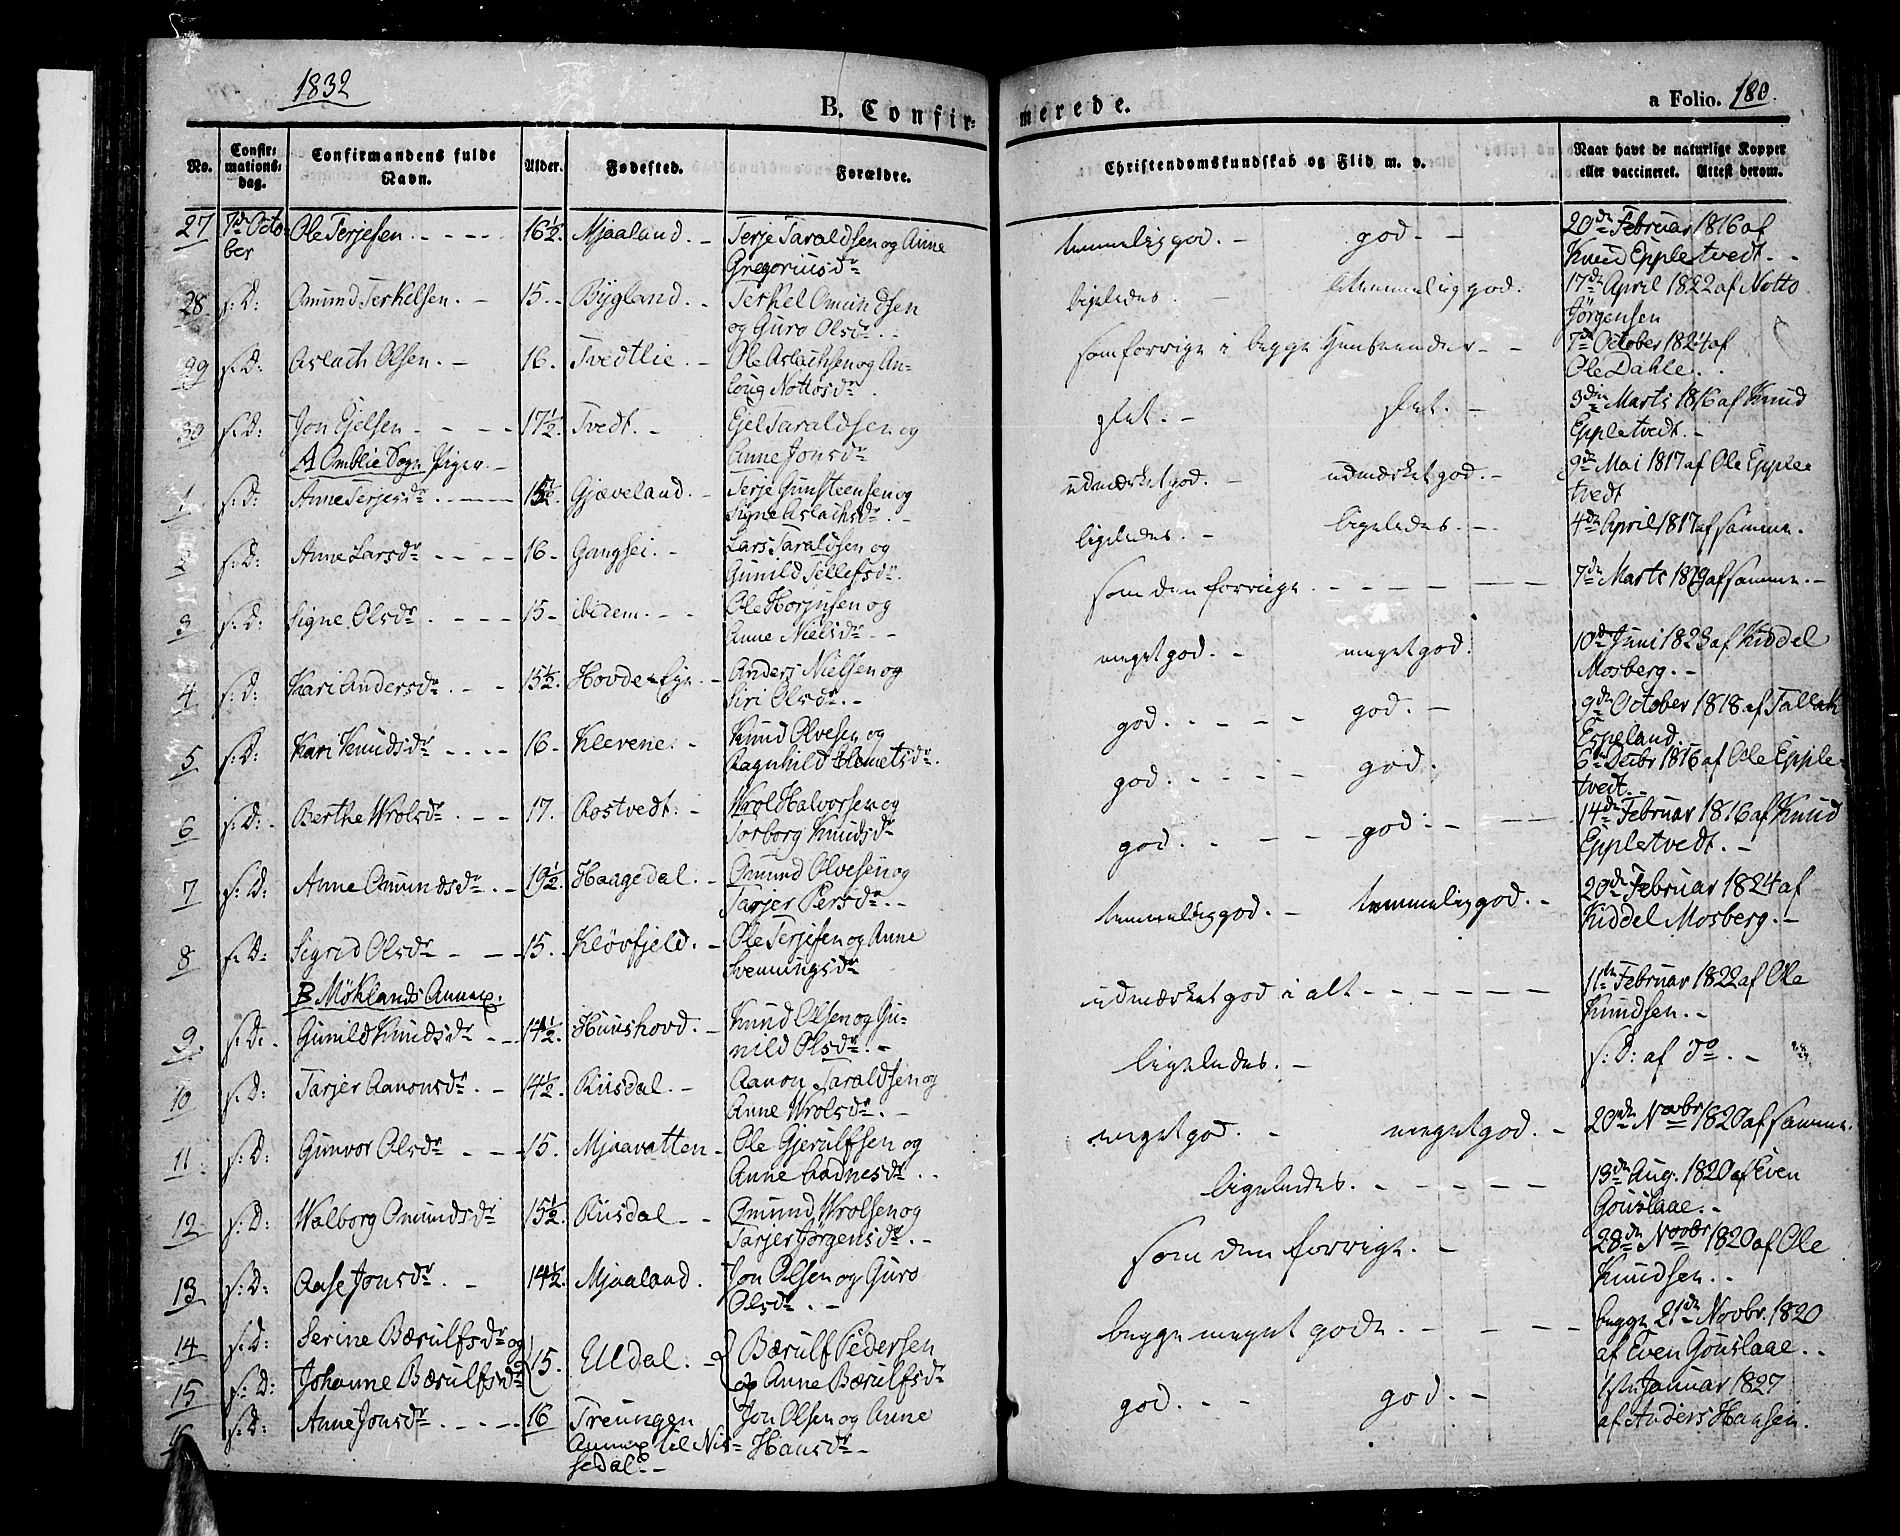 1832
B. Confirmerede.
a Folio. 180.
No. Confirmationsdag. Confirmandens fulde Navn. Alder. Fødested. Forældre. Christendomskundskab og Flid m. v. Naar havt de naturlige Kopper eller vaccineret. Attest derom.
27 7de Octo- Ole Terjesen. 16½. Mjaaland. Terje Taraldsen og Anne temmelig god. god. 20de Februar 1816 af
ber Gregoriusdr Knud Eppletvedt.
28 s: D: Omund Terkelsen. 15. Bygland. Terkel Omundsen ligeledes. temmelig god. 17de April 1822 af Notto
og Guro Olsdr. Jørgensen
29 s: D: Aslach Olsen. 16. Tvedtlie. Ole Aslachsen og An- som forrige i begge Henseender 7de October 1824 af
laug Nottosdr. Ole Dahle.
30 s: D: Jon Ejelsen. 17½. Tvedt. Ejel Taraldsen og slet. slet. 3die Marts 1816 af Knud
Anne Jonsdr Eppletvedt.
A Omblie Sogn Piger.
1 s: D: Anne Terjesdr. 15½. Gjæveland. Terje Gunsteensen og udmærket god. udmærket god. 9de Mai 1817 af Ole Epple-
Signe Aslachsdr. tvedt
2 s: D: Anne Larsdr 16 Gangsei. Lars Taraldsen og ligeledes. ligeledes. 4de April 1817 af samme.
Gunild Tellefsdr.
3 s: D: Signe Olsdr. 15 ibidem. Ole Horjusen og som den forrige. 7de Marts 1819 af samme.
Anne Nielsdr
4 s: D: Kari Andersdr. 15½. Hovdefyr. Anders Nielsen og meget god. meget god. 10de Juni 1823 af Kiddel
Siri Olsdr. Mosberg.
5 s: D: Kari Knudsdr 16 Klevene. Knud Olvesen og god. god. 9de October 1818 af Tallak
Ragnhild Olmetsdr. Espeland.
6 s: D: Berthe Wrolsdr. 17. Rostvedt. Wrol Halvorsen og god. god. 6te Decbr 1816 af Ole Epple-
Torborg Knudsdr tvedt.
7 s: D: Anne Omundsdr. 19½. Haagedal. Omund Olvesen og god. god. 14de Februar 1816 af Knud
Tarjer Persdr. Eppletvedt.
8 s: D: Sigrid Olsdr 15. Kløvfjeld. Ole Terjesen og Anne temmelig god. temmelig god. 20de Februar 1824 af
Svenningsdr Kiddel Mosberg.
B Møklands Annex.
9. s: D: Gunild Knudsdr 14½. Huushovd. Knud Olsen og Gu- udmærket god i alt 11te Februar 1822 af Ole
nild Olsdr. Knudsen.
10 s: D: Tarjer Aanonsdr. 14½. Riisdal. Aanon Taraldsen og ligeledes. s: D: af do.
Anne Wrolsdr.
11. s: D: Gunvor Olsdr 15. Mjaavatten Ole Gjerulfsen og meget god. meget god. 20de Novbr 1820 af samme.
Anne Ladnesdr.
12 s: D: Walborg Omundsdr 15½. Riisdal Omund Wrolsen og ligeledes. 13de Aug. 1820 af Even
Tarjer Jørgensdr. Gouslaae.
13 s: D: Aase Jonsdr. 14½. Mjaaland. Jon Olsen og Guro som den forrige. 28de Novbr 1820 af Ole
Olsdr. Knudsen.
14 s: D: Serine Bærulfsdr og 15. Uldal. Bærulf Pedersen begge meget gode. begge 21de Novbr. 1820
15 s: D: Johanne Bærulfsdr og Anne Bærulfsdr af Even Gouslaae.
16 s: D: Anne Jonsdr. 16 Treungen Jon Olsen og Anne god. god. 1ste Januar 1827
Annex til Nis- Hansdr. af Anders Hansen.
sedal.